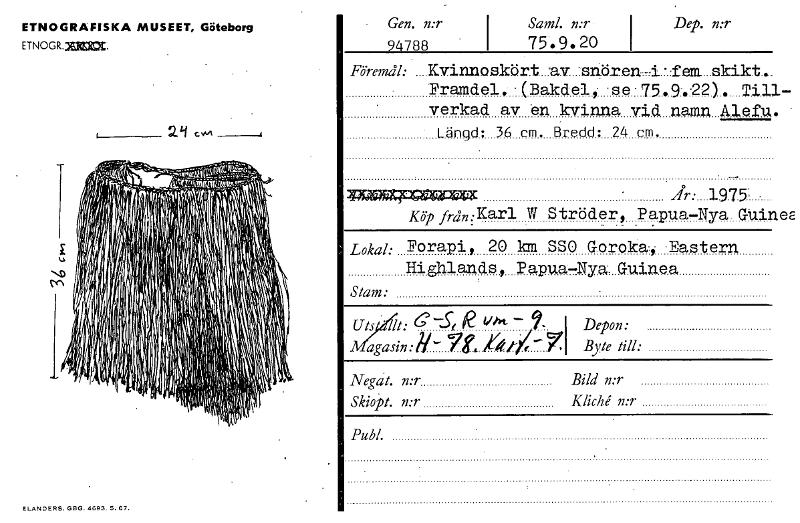 ETNOGRAFISKA MUSEET, Göteborg
ETNOGR.
24 cm
36 cm
ELANDERS. GBG. 4693. S. 67.
Gen. n:r
94788
Saml. n:r
75.9.20
Dep. n:r
Föremål: Kvinnoskört av snören i fem skikt.
Framdel. (Bakdel, se 75.9.22). Till-
verkad av en kvinna vid namn Alefu.
Längd: 36 cm. Bredd: 24 cm.
År: 1975
Köp från: Karl W Ströder, Papua-Nya Guinea
Lokal: Forapi, 20 km SSO Goroka, Eastern
Highlands, Papua-Nya Guinea
Stam:
Utställt: G-S, Rum-9.
Magasin: H-78. Kart.-7.
Depon:
Byte till:
Negat. n:r
Bild n:r
Skiopt. n:r
Kliché n:r
Publ.